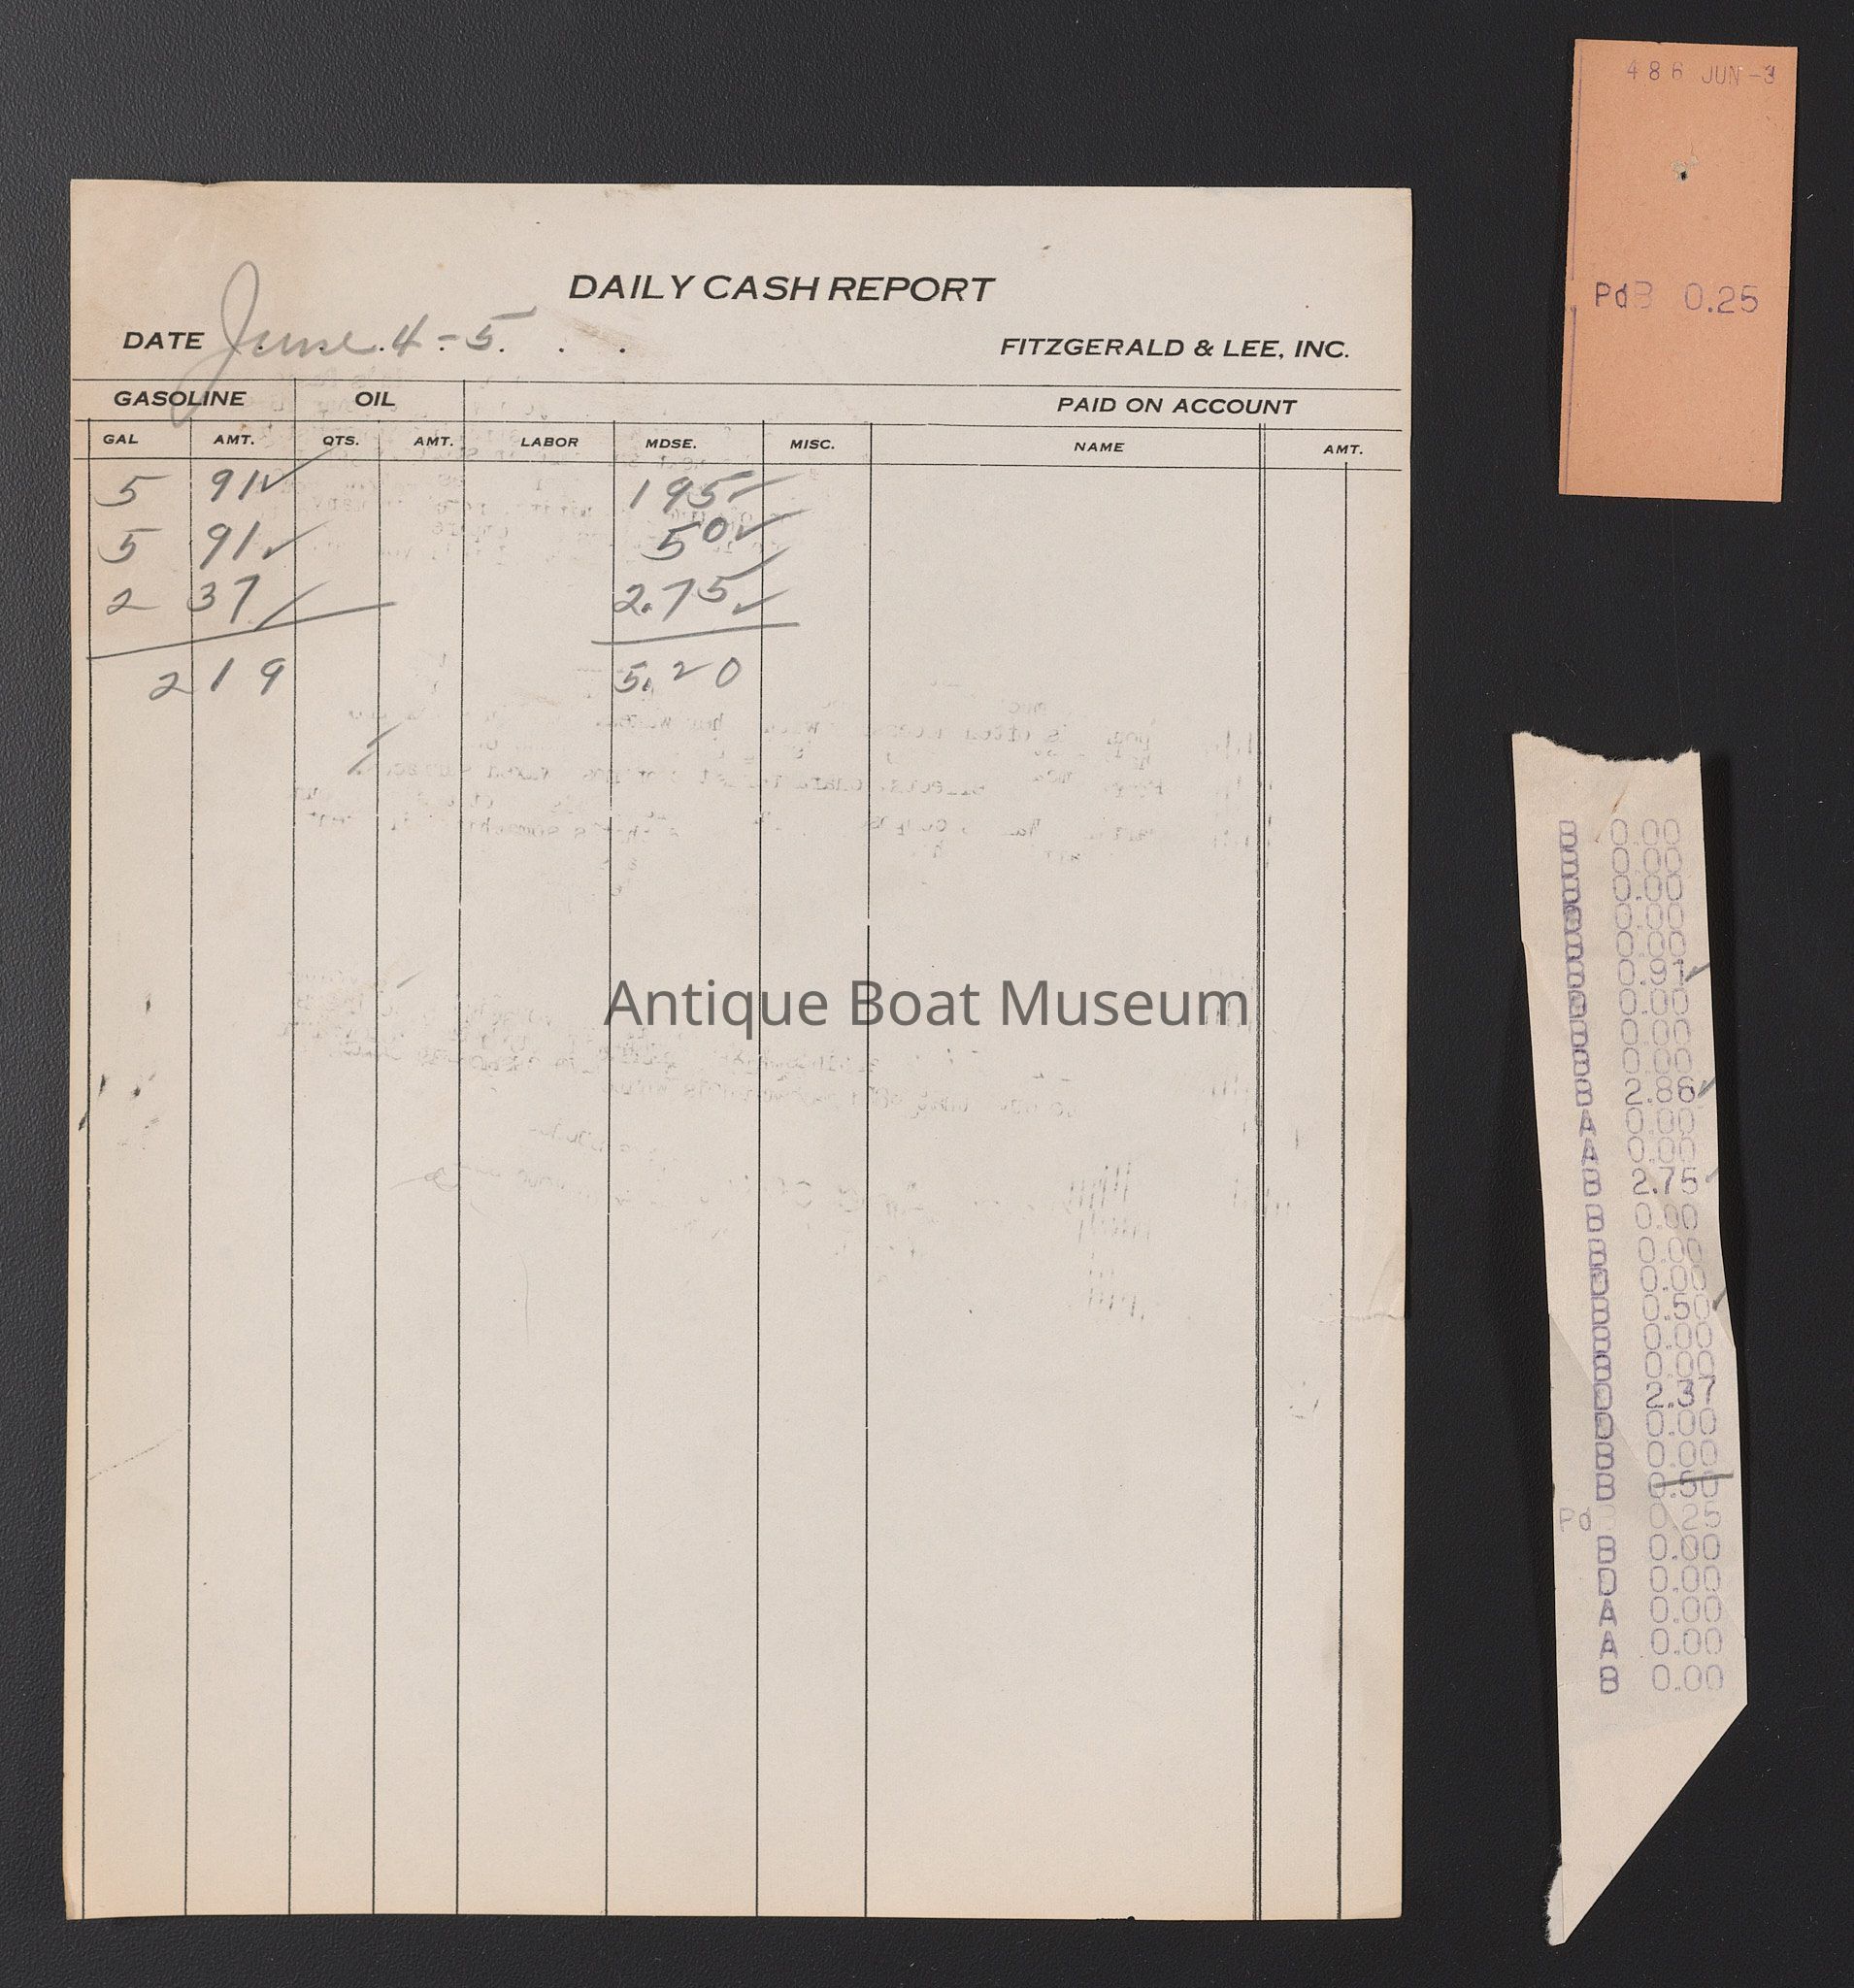 DAILY CASH REPORT
DATE June 4-5. FITZGERALD & LEE, INC.
GASOLINE OIL PAID ON ACCOUNT
GAL AMT. QTS. AMT. LABOR MDSE. MISC. NAME AMT.
5 91✓ 195✓
5 91✓ 50✓
2 37 2.75✓
219 5.20
Antique Boat Museum
486 JUN-3
PdB 0.25
B 0.00
B 0.00
B 0.00
B 0.00
B 0.00
B 0.91✓
0.00
B 0.00
B 0.00
B 2.86✓
A 0.00
A 0.00
B 2.75✓
B 0.00
B 0.00
D 0.00
B 0.50✓
B 0.00
B 0.00
D 2.37
D 0.00
B 0.00
B 0.50
Pd 0.25
B 0.00
D 0.00
A 0.00
A 0.00
B 0.00